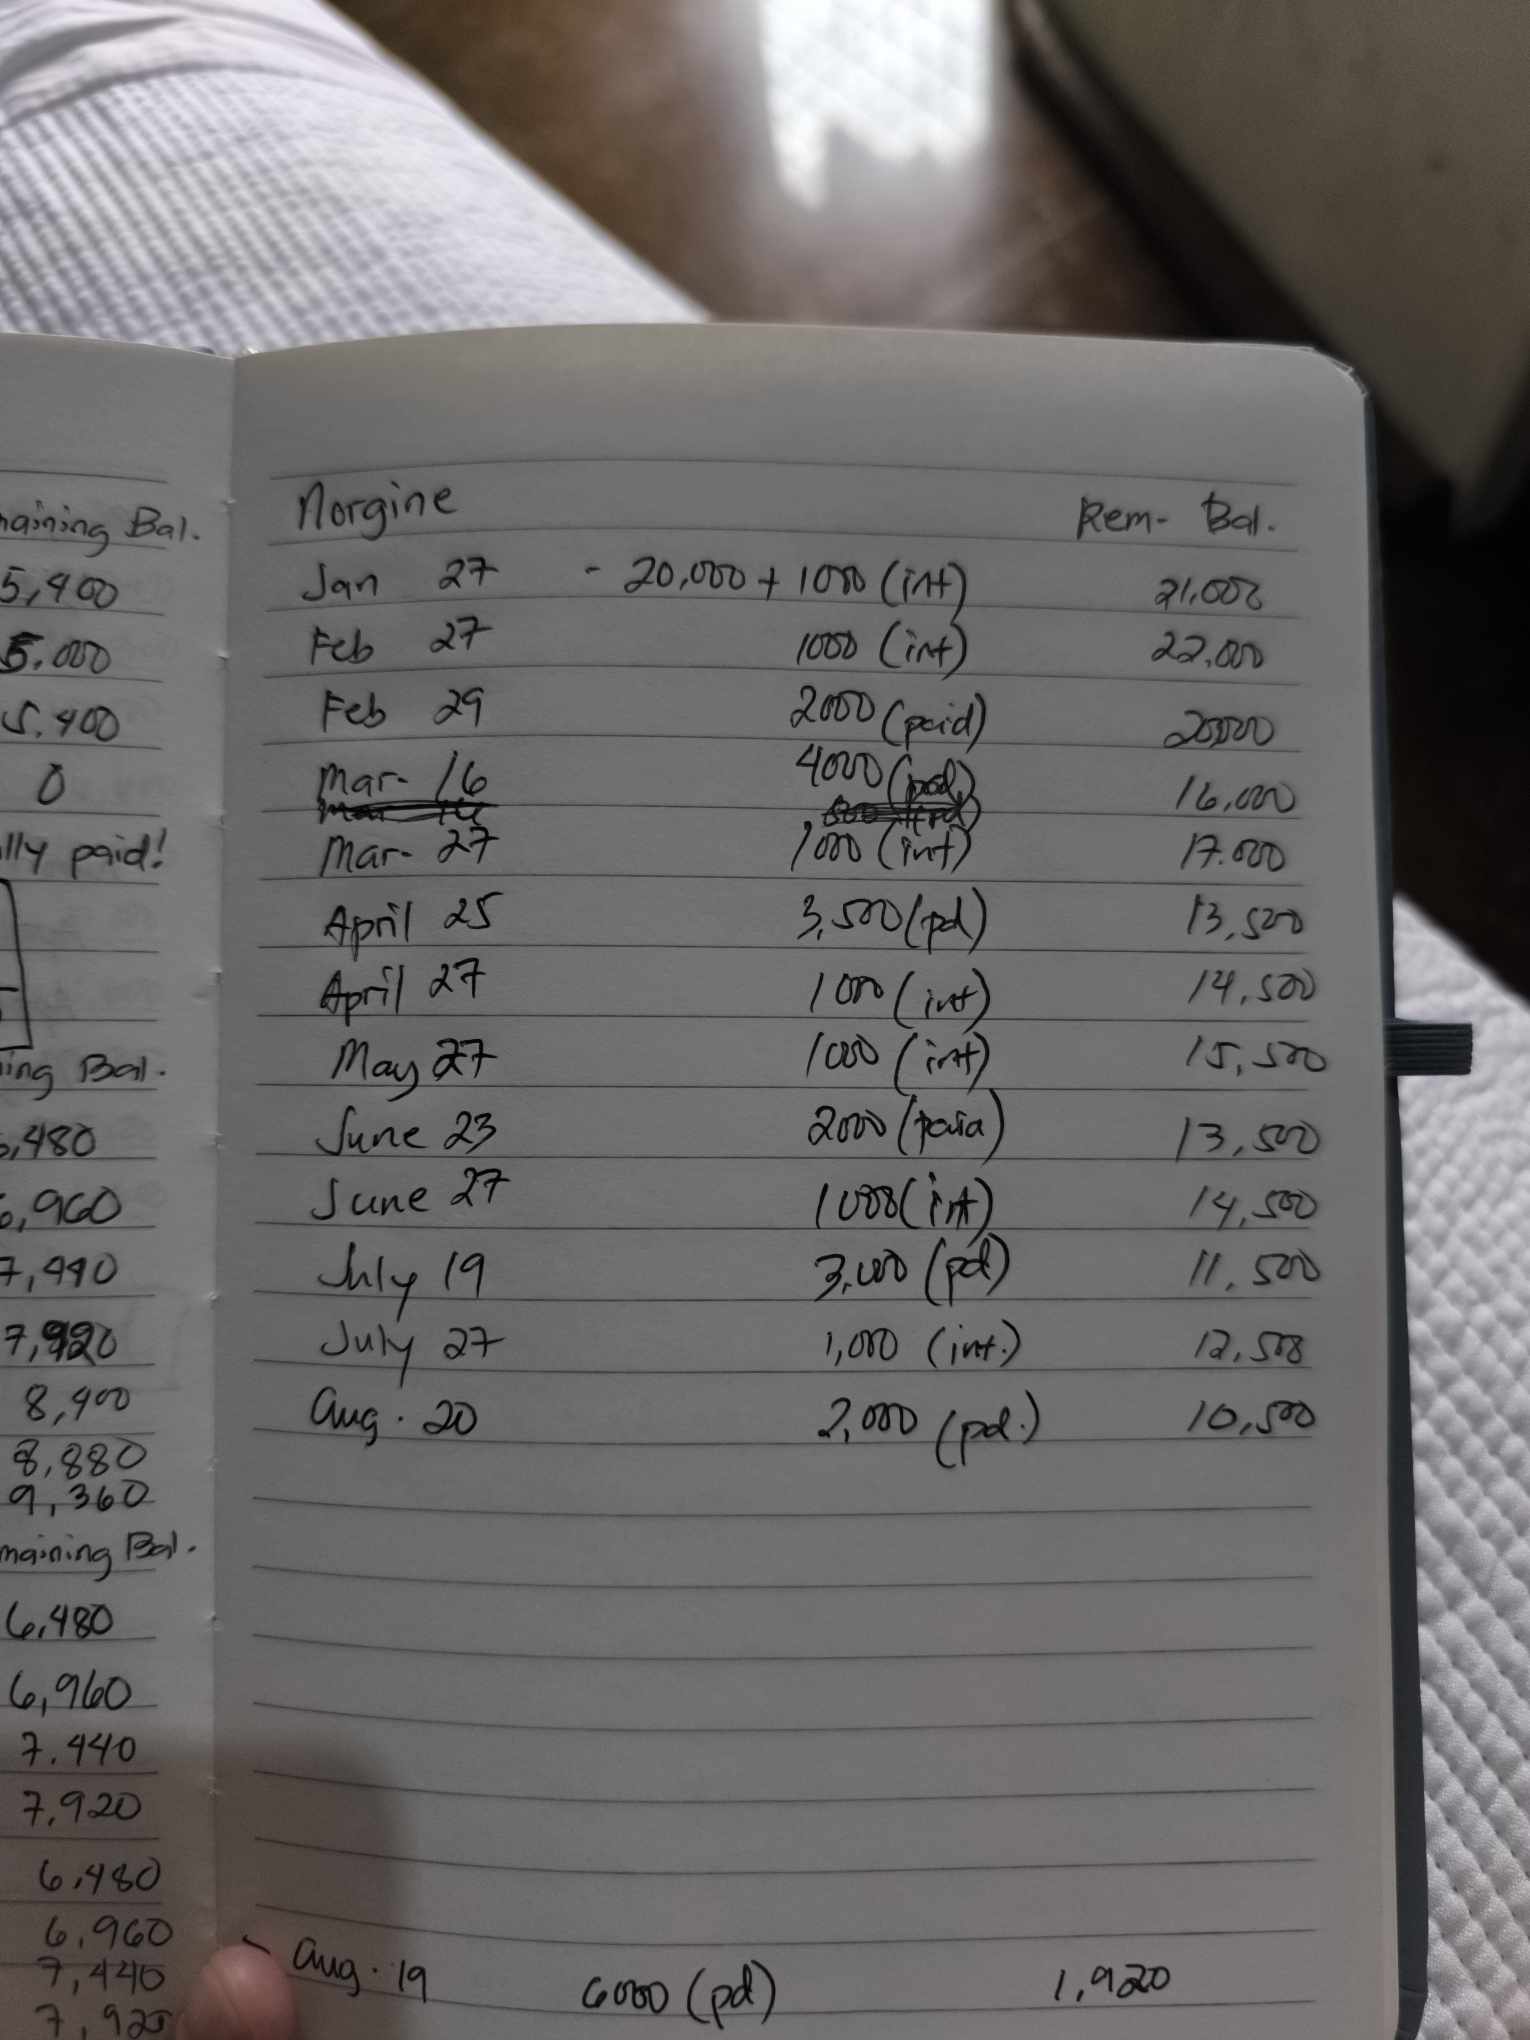 maining Bal.
5,400
5,000
5,400
0
lly paid!
ing Bal.
,480
6,960
7,440
7,920
8,400
8,880
9,360
maining Bal.
6,480
6,960
7,440
7,920
6,480
6,960
7,440
7,920
Norgine Rem- Bal.
Jan 27 - 20,000 + 1000 (int) 21,000
Feb 27 1000 (int) 22,000
Feb 29 2000 (paid) 20,000
Mar- 16 4000 (pd) 16,000
Mar- 27 1000 (int) 17.000
April 25 3,500 (pd) 13,500
April 27 1000 (int) 14,500
May 27 1000 (int) 15,500
June 23 2000 (paid) 13,500
June 27 1000 (int) 14,500
July 19 3,000 (pd) 11,500
July 27 1,000 (int.) 12,500
Aug. 20 2,000 (pd.) 10,500
Aug. 19 6000 (pd) 1,920